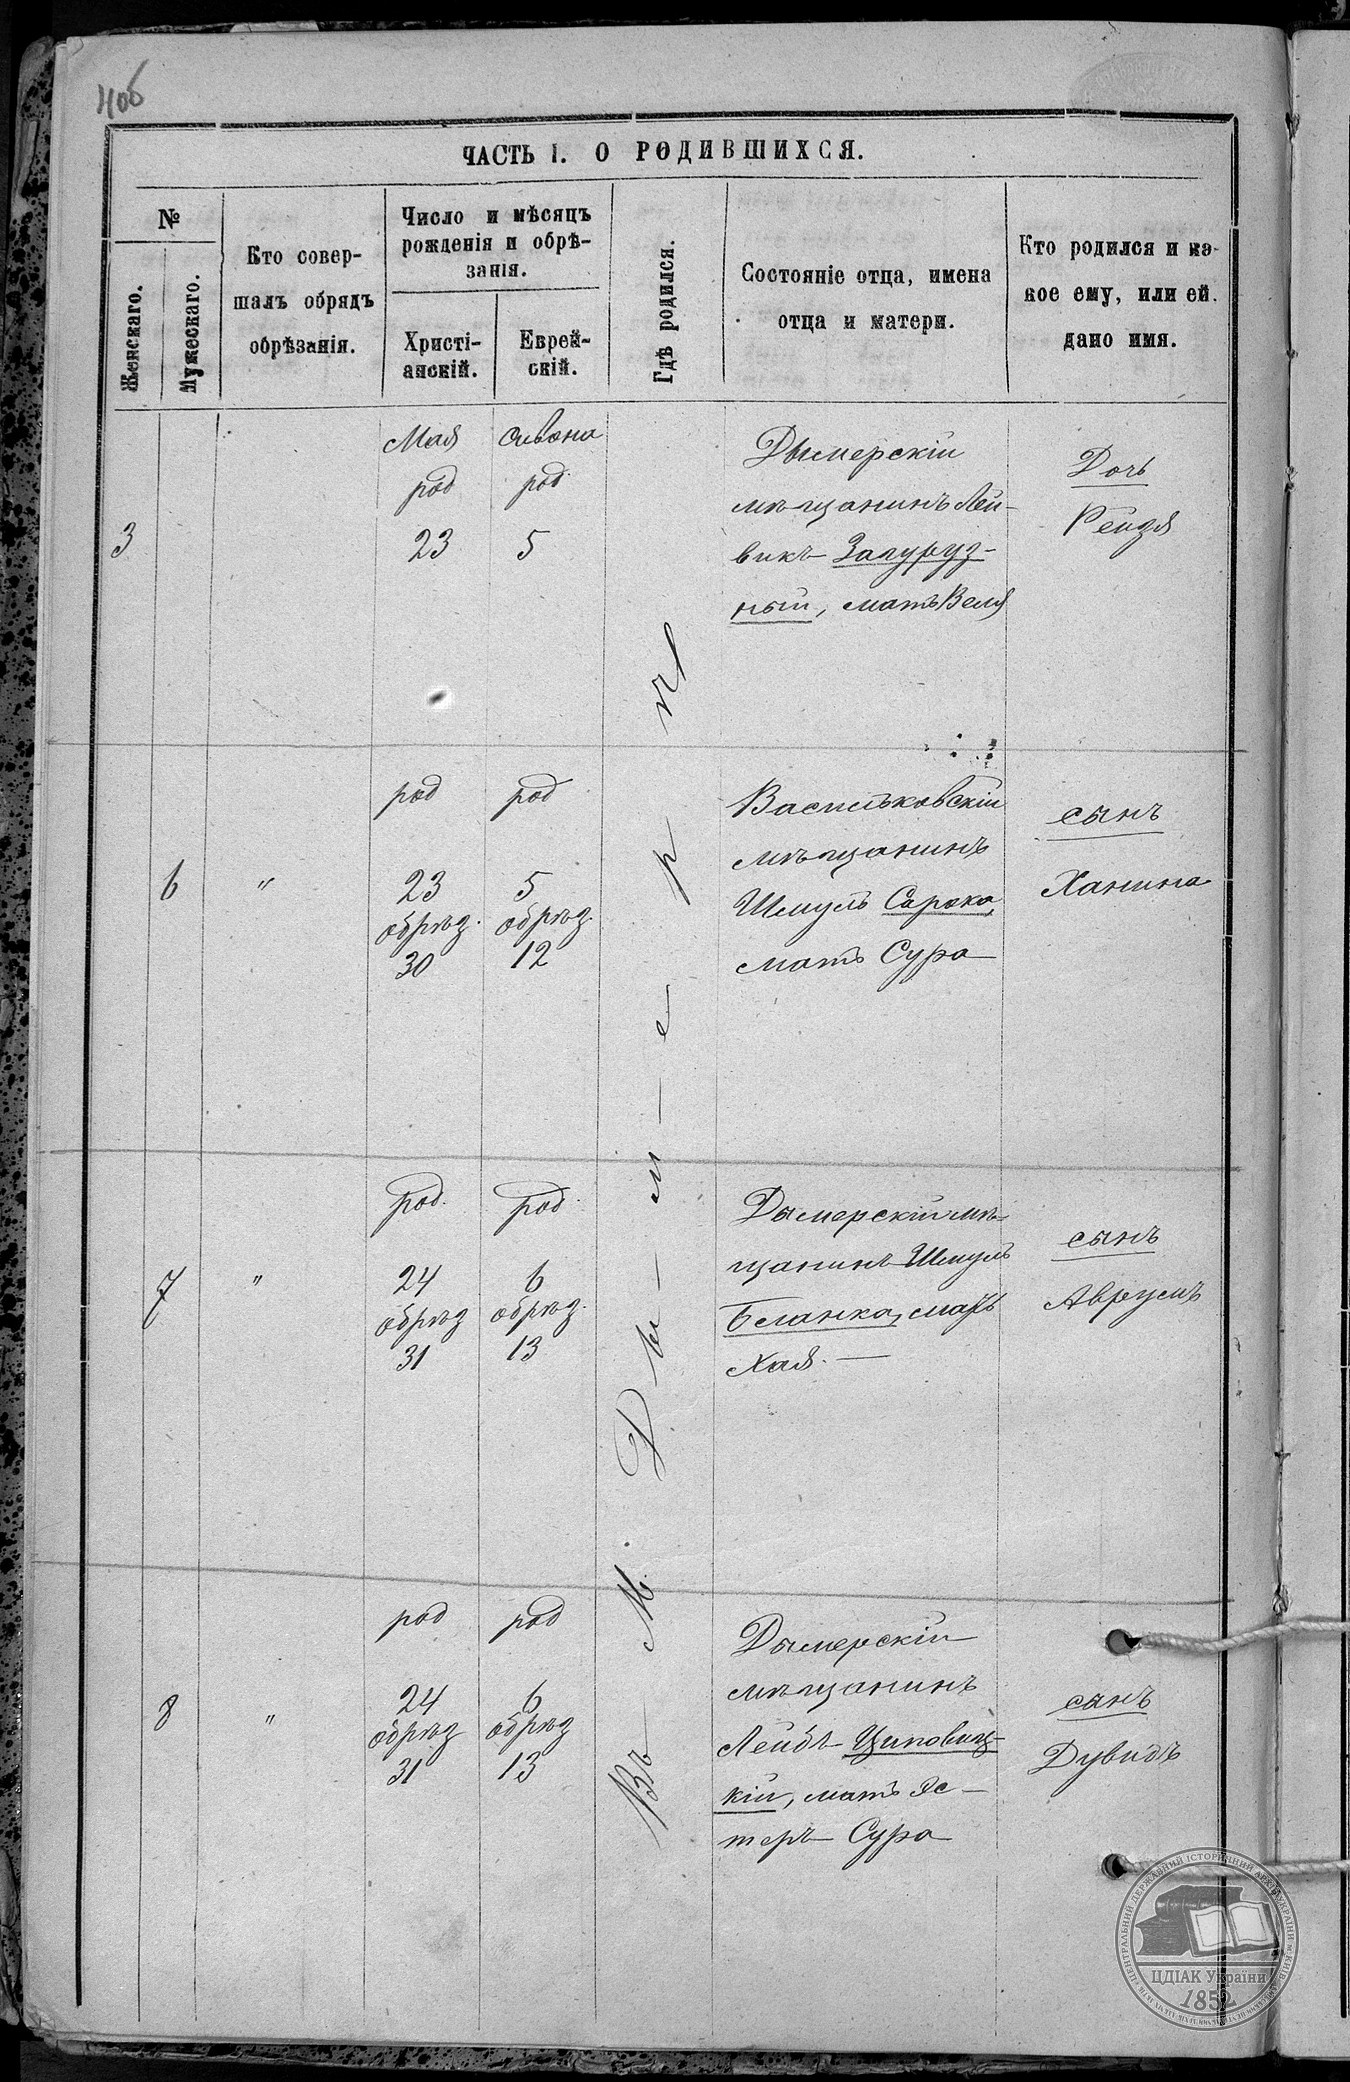 4об
ЧАСТЬ I. О РОДИВШИХСЯ.
№
Женскаго.
Мужескаго.
Кто совер-
шалъ обрядъ
обрѣзанія.
Число и мѣсяцъ
рожденія и обрѣ-
занія.
Христі-
анскій.
Еврей-
скій.
Гдѣ родился.
Состояніе отца, имена
отца и матери.
Кто родился и ка-
кое ему, или ей
дано имя.
Въ М. Ды-м-е-р-ѣ
3
Мая
род
23
Сивона
род.
5
Дымерскій
мѣщанинъ Лей-
викъ Запуруз-
ный, мать Веля
Дочь
Рейзя
6
"
род
23
обрѣз.
30
род
5
обрѣз.
12
Васильковскій
мѣщанинъ
Шмуль Сарока,
мать Сура
сынъ
Ханина
7
"
род.
24
обрѣз
31
род.
6
обрѣз.
13
Дымерскій мѣ-
щанинъ Шмуль
Бланка, мать
Хая.
сынъ
Аврумъ
8
"
род
24
обрѣз
31
род
6
обрѣз
13
Дымерскій
мѣщанинъ
Лейбъ Циповиц-
кій, мать Эс-
теръ Сура
сынъ
Дувидъ
ЦЕНТРАЛЬНИЙ ДЕРЖАВНИЙ ІСТОРИЧНИЙ АРХІВ УКРАЇНИ м. КИЇВ
ЦДІАК України
1852